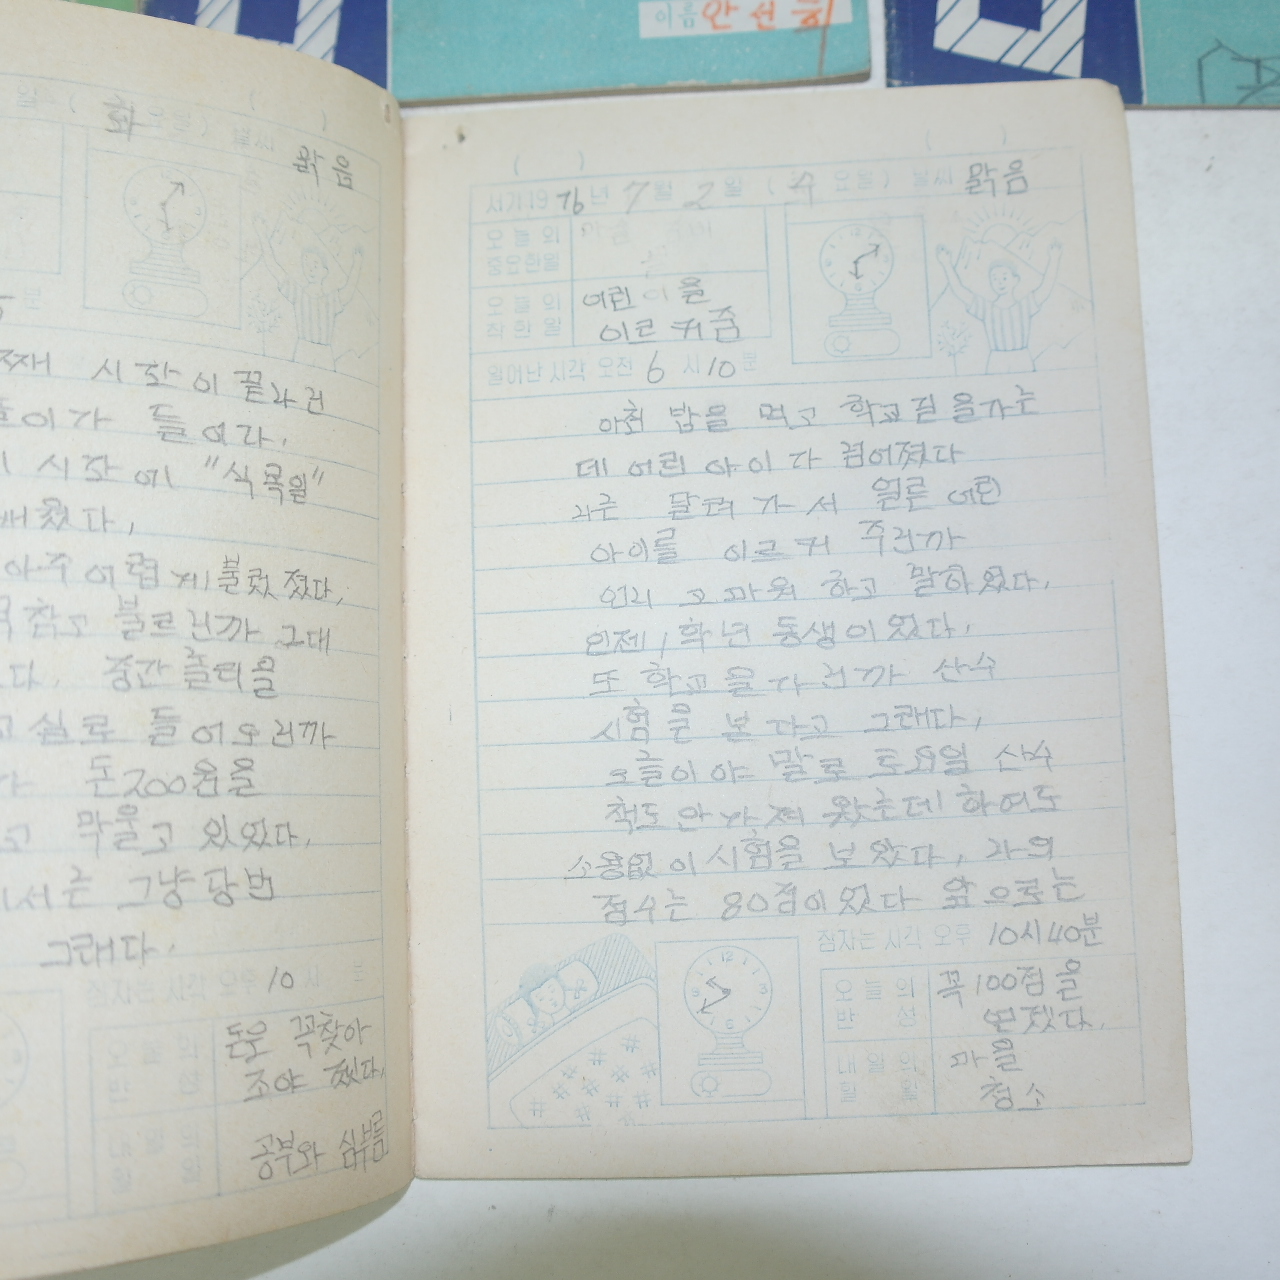 이름 안선희
화요일) 날씨 맑음
째 시작이끝나건
들이가 들어다.
시작에 "식목일"
배웠다,
아주어렵게불렀졌다,
참고 불르건까 그대
다. 중간놀리을
교실로 들어오러까
돈200원을
고 막울고 있었다,
서는 그냥당번
그래다.
잠자는 시각 오후 10시 분
돈은 꼭찾아
조야 겠다,
공부와 심부름
( ) ( )
서기1976년 7월 2일 (수요일) 날씨 맑음
오늘의
중요한일
오늘의
착한일
어린이을
이르켜줌
일어난시각 오전 6시10분
아침 밥을 먹고 학교길을가는
데 어린아이다 넘어졌다
나는 달려가서 얼른 어린
아이를 이르켜 주건까
언니 고마워 하고 말하였다.
인제1학년 동생이였다.
또 학교을가건까 산수
시험을 본다고 그래다,
오늘이야 말로 토요일 산수
책도안가져왔는데 하여도
소용없이시험을 보았다, 나의
점수는 80점이였다 앞으로는
잠자는 시각 오후 10시40분
오늘의
반성
꼭100점을
맏겠다.
내일의
할일
마을
청소